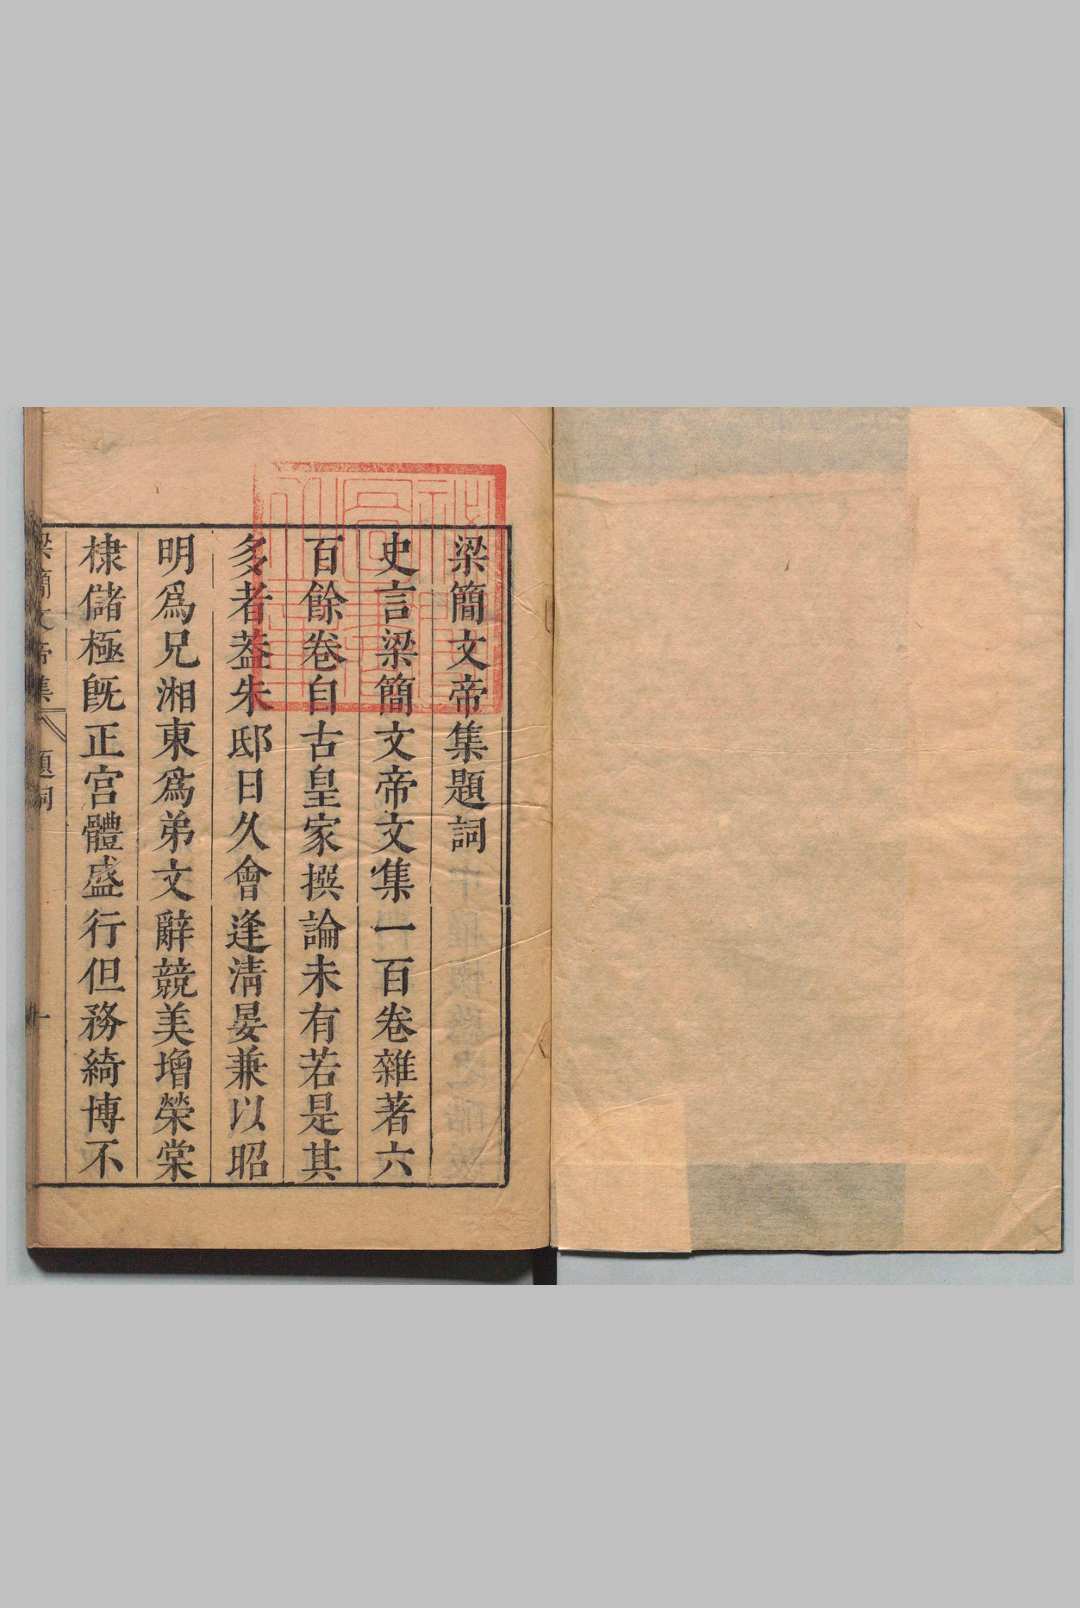 梁簡文帝集題詞
史言梁簡文帝文集一百卷雜著六
百餘卷自古皇家撰論未有若是其
多者葢朱邸日久會逢清晏兼以昭
明爲兄湘東爲弟文辭競美增榮棠
棣儲極旣正宮體盛行但務綺博不
梁簡文帝集 題詞 一